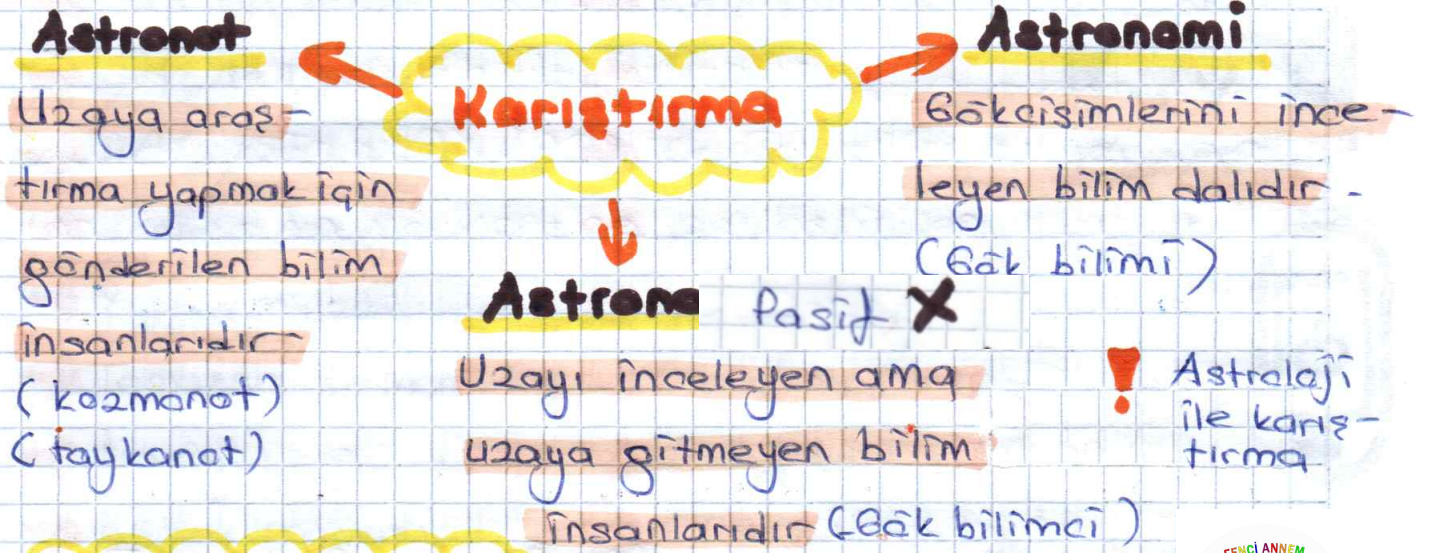 Astronot
Uzaya araş-
tırma yapmak için
gönderilen bilim
insanlarıdır
(kozmonot)
(taykonot)
Karıştırma
Astronomi
Gökcisimlerini ince-
leyen bilim dalıdır.
(Gök bilimi)
Astrono
Pasif X
Uzayı inceleyen ama
uzaya gitmeyen bilim
insanlarıdır (Gök bilimci)
! Astroloji
ile karış-
tırma
FENCİ ANNEM